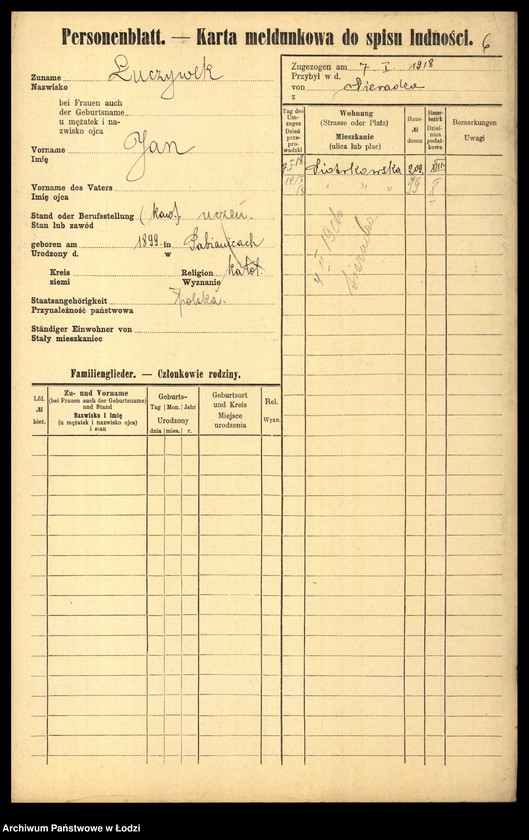 Personenblatt. — Karta meldunkowa do spisu ludności. 6
Zuname Łuczywek
Nazwisko
bei Frauen auch
der Geburtsname
u mężatek i na-
zwisko ojca
Vorname Jan
Imię
Vorname des Vaters
Imię ojca
Stand oder Berufsstellung (kaw.) uczeń.
Stan lub zawód
geboren am 1899 in Pabianicach
Urodzony d. w
Kreis Religion katol.
ziemi Wyznanie
Staatsangehörigkeit polska.
Przynależność państwowa
Ständiger Einwohner von
Stały mieszkaniec
Zugezogen am 7. I. 1918
Przybył w d.
von Sieradza
z
Tag des Um-zuges Dzień prze-prowadzki
Wohnung
(Strasse oder Platz)
Mieszkanie
(ulica lub plac)
Haus-
№
domu
Steuer-bezirk Dziel-nica podat-kowa
Bemerkungen
Uwagi
Piotrkowska 209
" " " 99
Sieradza
Familienglieder. — Członkowie rodziny.
Lfd.
№
bież.
Zu- und Vorname
(bei Frauen auch der Geburtsname)
und Stand
Nazwisko i imię
(u mężatek i nazwisko ojca)
i stan
Geburts-
Tag Mon. Jahr
Urodzony
dnia mies. r.
Geburtsort
und Kreis
Miejsce
urodzenia
Rel.
Wyzn.
Archiwum Państwowe w Łodzi